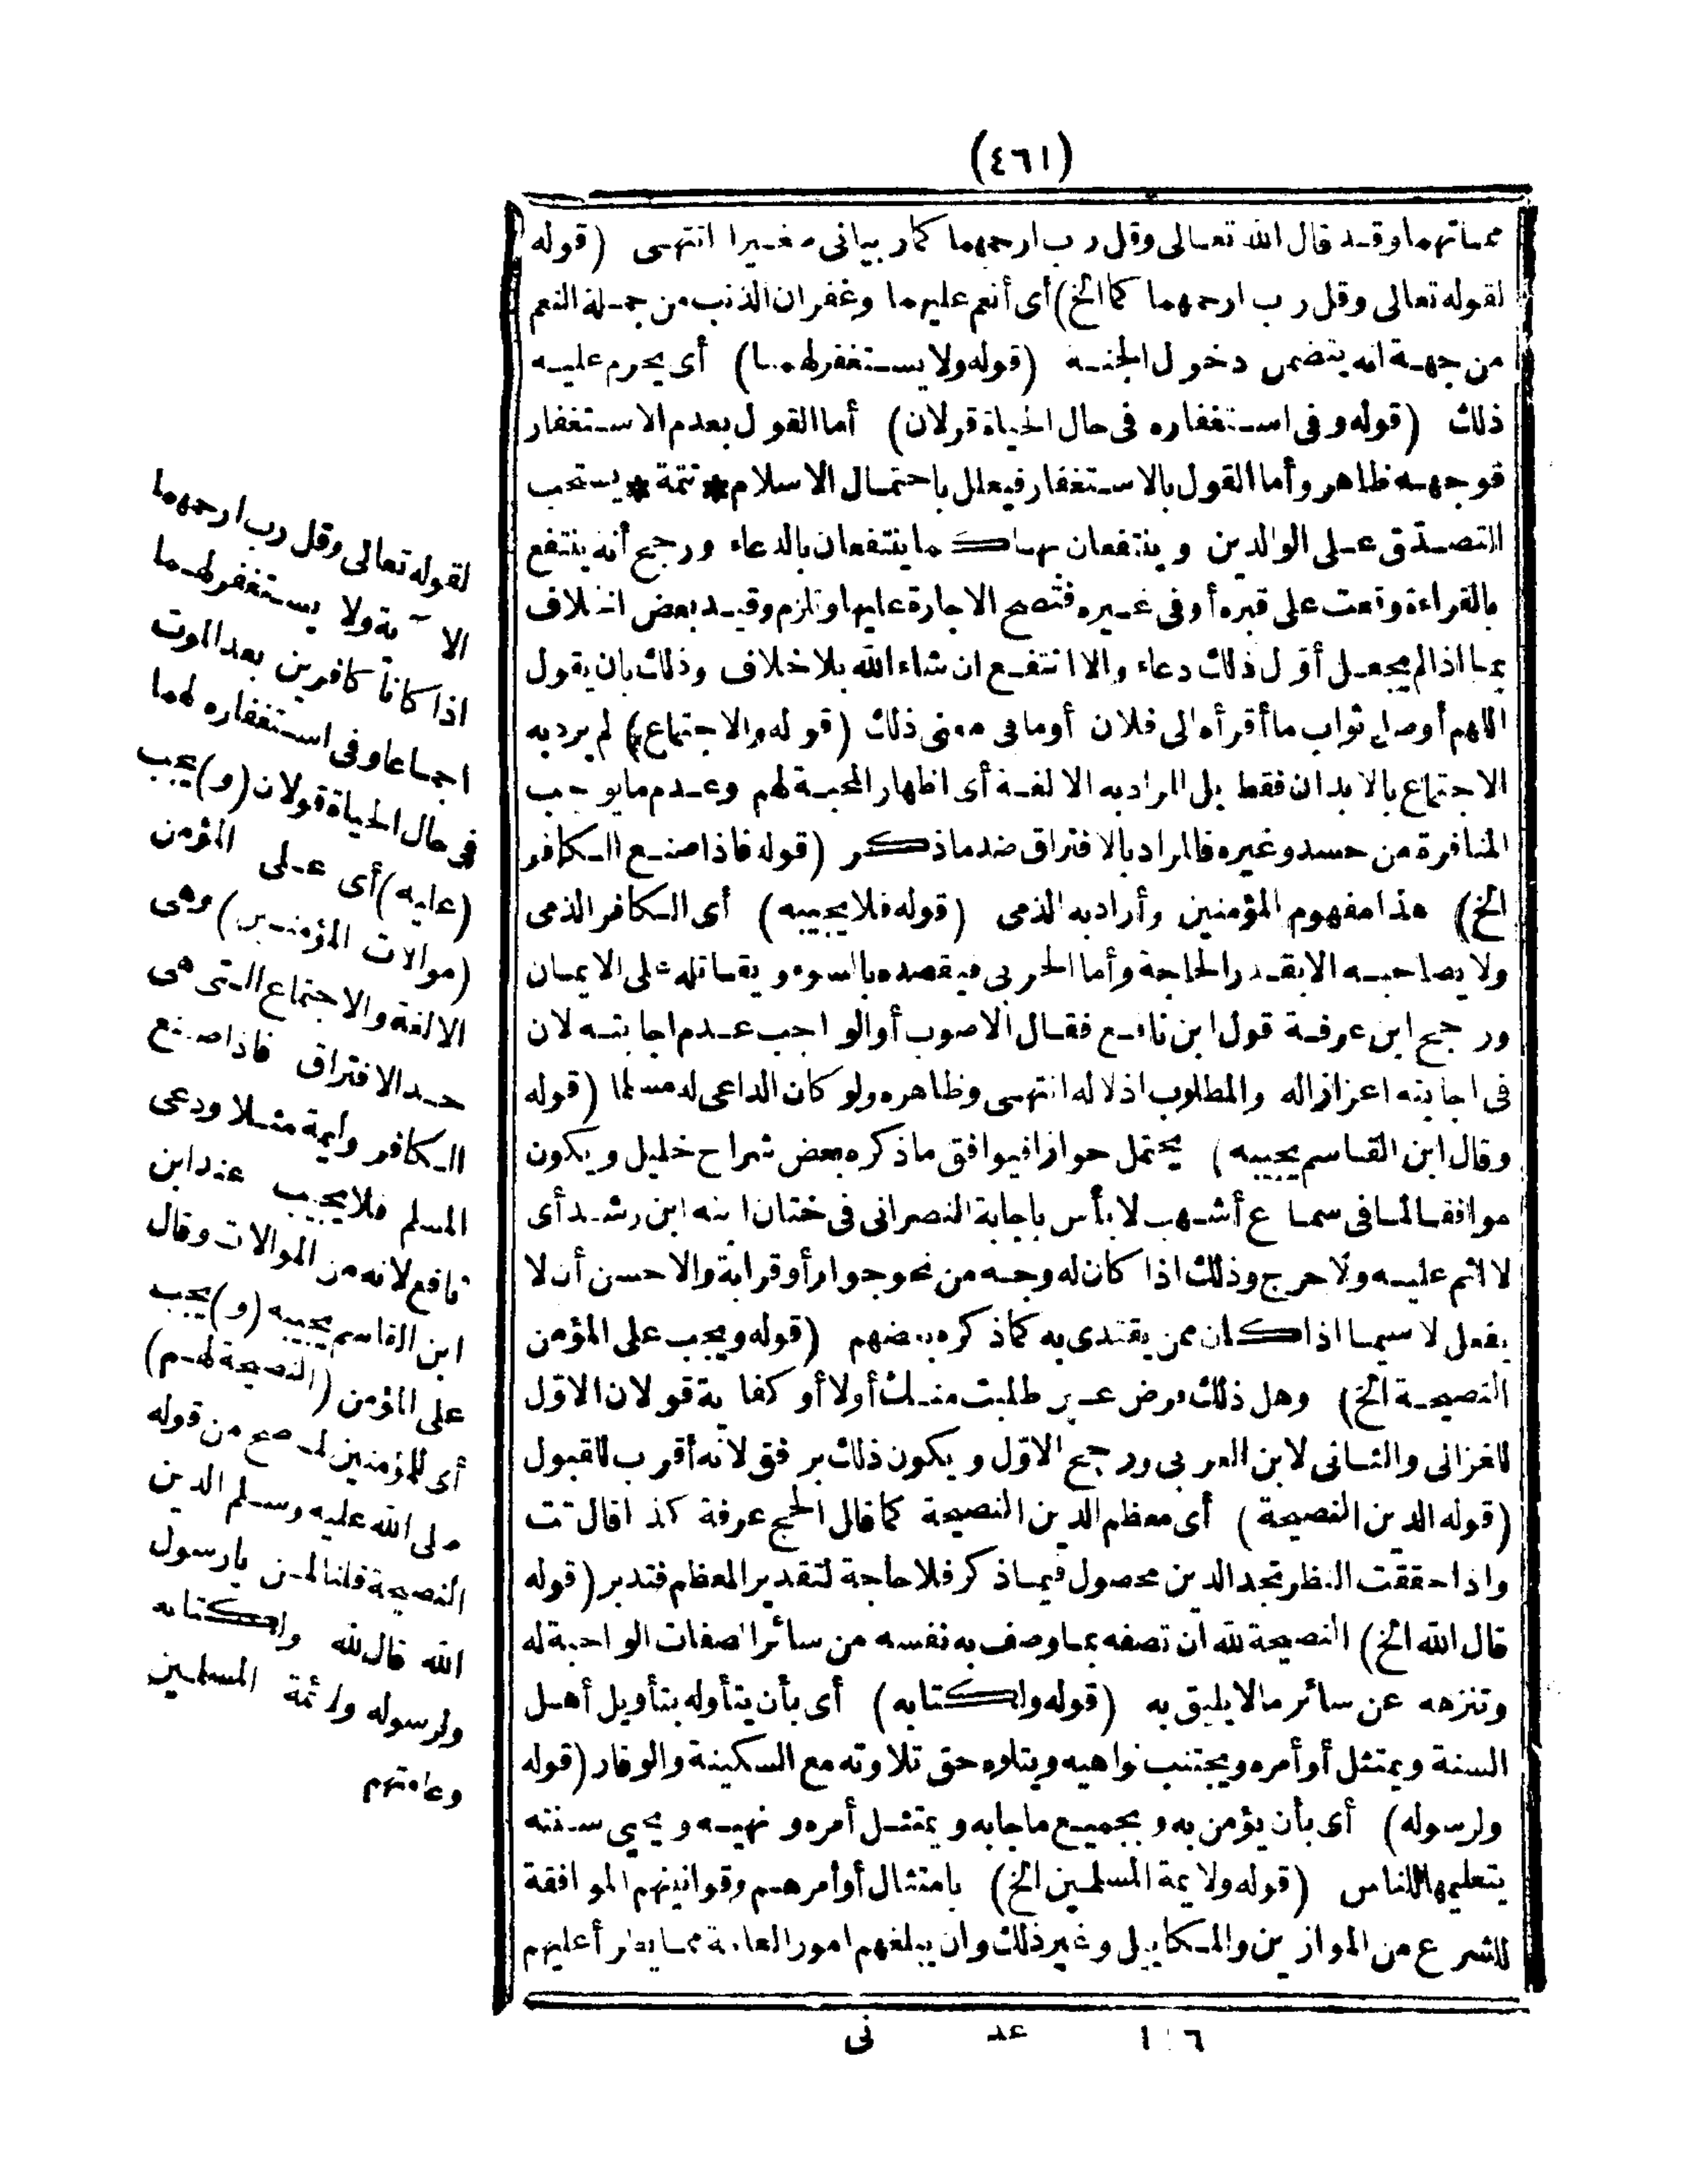 (٤٦١)
مماتهما وقد قال الله تعالى وقل رب ارحمهما كما ربيانى صغيرا انتهى (قوله
لقوله تعالى وقل رب ارحمهما كما الخ) أى أنعم عليهما وغفران الذنب من جملة النعم
من جهة انه يتضمن دخول الجنة (قوله ولا يستغفر لهما) أى يحرم عليه
ذلك (قوله وفى استغفاره فى حال الحياة قولان) أما القول بعدم الاستغفار
فوجهه ظاهر وأما القول بالاستغفار فيعلل باحتمال الاسلام * تتمة * يستحب
التصدّق على الوالدين وينتفعان بها كما ينتفعان بالدعاء ورجح أنه ينتفع
بالقراءة وقعت على قبره أو فى غيره فتصح الاجارة عليها وتلزم وقيد بعض الخلاف
بما اذا لم يجعل أوّل ذلك دعاء والا انتفع ان شاء الله بلا خلاف وذلك بان يقول
اللهم أوصل ثواب ما أقرأه الى فلان أو ما فى معنى ذلك (قوله والاجتماع) لم يرد به
الاجتماع بالابدان فقط بل المراد به الالفة أى اظهار المحبة لهم وعدم ما يوجب
المنافرة من حسد وغيره فالمراد بالافتراق ضد ما ذكر (قوله فاذا صنع الكافر
الخ) هذا مفهوم المؤمنين وأراد به الذمى (قوله فلا يجيبه) أى الكافر الذمى
ولا يصاحبه الا بقدر الحاجة وأما الحربى فيقصده بالسوء ويقاتله على الايمان
ورجح ابن عرفة قول ابن نافع فقال الاصوب أو الواجب عدم اجابته لان
فى اجابته اعزازا له والمطلوب اذلاله انتهى وظاهره ولو كان الداعى له مسلما (قوله
وقال ابن القاسم يجيبه) يحتمل جوازا فيوافق ما ذكره بعض شراح خليل ويكون
موافقا لما فى سماع أشهب لا بأس باجابة النصرانى فى ختان ابنه ابن رشد أى
لا اثم عليه ولا حرج وذلك اذا كان له وجه من نحو جوار أو قرابة والاحسن أن لا
يفعل لا سيما اذا كان ممن يقتدى به كما ذكره بعضهم (قوله ويجب على المؤمن
النصيحة الخ) وهل ذلك فرض عين طلبت منك أولا أو كفاية قولان الاوّل
للغزالى والثانى لابن العربى ورجح الاوّل ويكون ذلك برفق لانه أقرب للقبول
(قوله الدين النصيحة) أى معظم الدين النصيحة كما قال الحج عرفة كذا قال تت
واذا حققت النظر تجد الدين محصول فيما ذكر فلا حاجة لتقدير المعظم فتدبر (قوله
قال الله الخ) النصيحة لله ان تصفه بما وصف به نفسه من سائر الصفات الواجبة له
وتنزهه عن سائر ما لا يليق به (قوله ولكتابه) أى بأن يتأوله بتأويل أهل
السنة ويمتثل أوامره ويجتنب نواهيه ويتلوه حق تلاوته مع السكينة والوقار (قوله
ولرسوله) أى بأن يؤمن به وبجميع ما جاء به ويمتثل أمره ونهيه ويحيى سنته
بتعليمها للناس (قوله ولايمة المسلمين الخ) بامتثال أوامرهم وقوانينهم الموافقة
للشرع من الموازين والمكاييل وغير ذلك وان يبلغهم امور العامة مما يطرأ عليهم
لقوله تعالى وقل رب ارحمهما
الآية ولا يستغفر لهما
اذا كانا كافرين بعد الموت
اجماعا وفى استغفاره لهما
فى حال الحياة قولان (و) يجب
(عليه) أى على المؤمن
(موالات المؤمنين) وهى
الالفة والاجتماع التى هى
ضد الافتراق فاذا صنع
الكافر وليمة مثلا ودعى
المسلم فلا يجيب عند ابن
نافع لانه من الموالات وقال
ابن القاسم يجيبه (و) يجب
على المؤمن (النصيحة لهم)
أى للمؤمنين لما صح من قوله
صلى الله عليه وسلم الدين
النصيحة قلنا لمن يارسول
الله قال لله ولكتابه
ولرسوله ولائمة المسلمين
وعامتهم
١١٦ عد نى